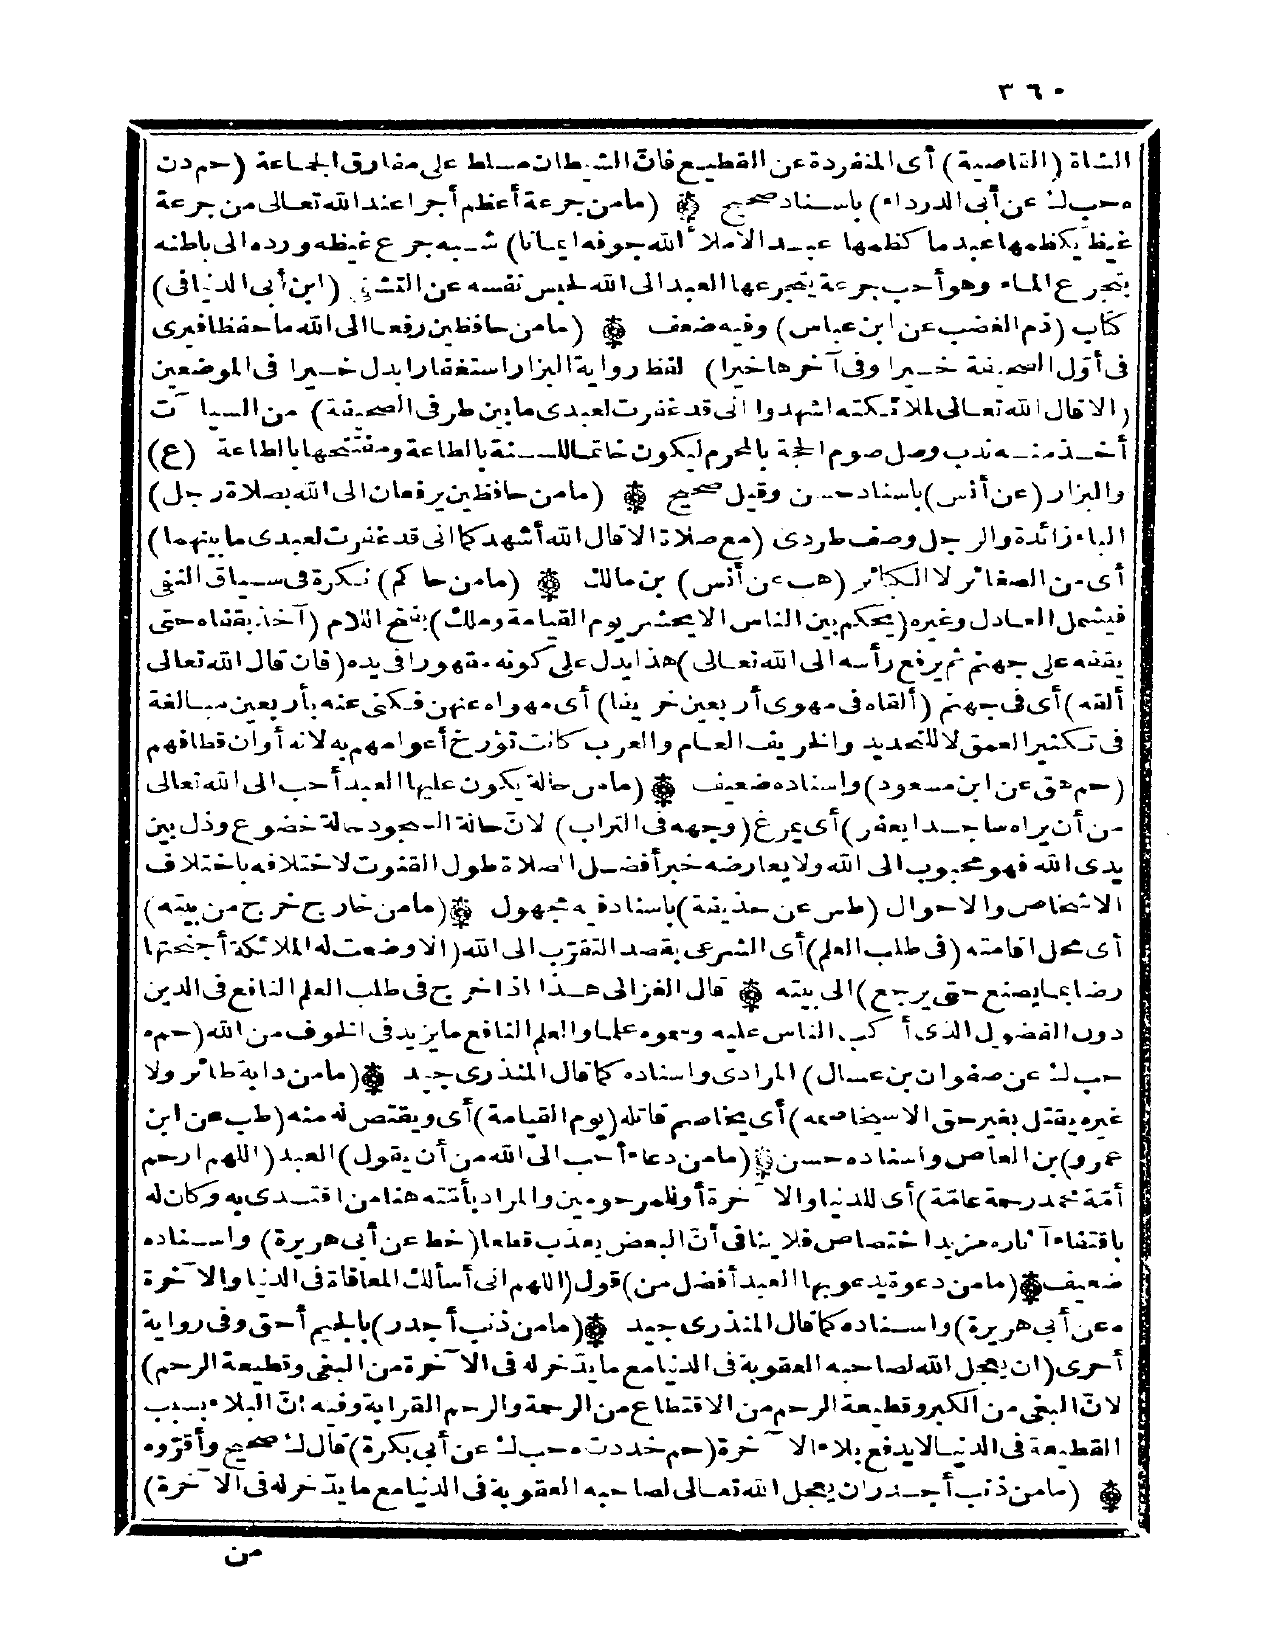 ٣٦٠
الشاة (القاصية) أى المنفردة عن القطيع فانّ الشيطان مسلط على مفارق الجماعة (حم د ن
ه حب ك عن أبى الدرداء) باسناد صحيح ۞ (ما من جرعة أعظم أجرا عند الله تعالى من جرعة
غيظ يكظمها عبد ما كظمها عبد الا ملأ الله جوفه ايمانا) شبه جرع غيظه ورده الى باطنه
بتجرع الماء وهو أحب جرعة يتجرعها العبد الى الله لحبس نفسه عن التشفى (ابن أبى الدنيا فى)
كتاب (ذم الغضب عن ابن عباس) وفيه ضعف ۞ (ما من حافظين رفعا الى الله ما حفظا فيرى
فى أوّل الصحيفة خيرا وفى آخرها خيرا) لفظ رواية البزار استغفارا بدل خيرا فى الموضعين
(الا قال الله تعالى لملائكته اشهدوا انى قد غفرت لعبدى ما بين طرفى الصحيفة) من السيات
أخذ منه ندب وصل صوم الحجة بالمحرم ليكون خاتما للسنة بالطاعة ومفتتحها بالطاعة (ع)
والبزار (عن أنس) باسناد حسن وقيل صحيح ۞ (ما من حافظين يرفعان الى الله بصلاة رجل)
الباء زائدة والرجل وصف طردى (مع صلاة الا قال الله أشهدكما انى قد غفرت لعبدى ما بينهما)
أى من الصغائر لا الكبائر (هب عن أنس) بن مالك ۞ (ما من حاكم) نكرة فى سياق النفى
فيشمل العادل وغيره (يحكم بين الناس الا يحشر يوم القيامة وملك) بفتح اللام (آخذ بقفاه حتى
يقفه على جهنم ثم يرفع رأسه الى الله تعالى) هذا يدل على كونه مقهورا فى يده (فان قال الله تعالى
ألقه) أى فى جهنم (ألقاه فى مهوى أربعين خريفا) أى مهواه عنهن فكنى عنه بأربعين مبالغة
فى تكثير العمق لا للتحديد والخريف العام والعرب كانت تؤرخ أعوامهم به لانه أوان قطافهم
(حم هق عن ابن مسعود) واسناده ضعيف ۞ (ما من حالة يكون عليها العبد أحب الى الله تعالى
من أن يراه ساجدا يعفر) أى يمرغ (وجهه فى التراب) لانّ حالة السجود حالة خضوع وذل بين
يدى الله فهو محبوب الى الله ولا يعارضه خبر أفضل الصلاة طول القنوت لاختلافه باختلاف
الاشخاص والاحوال (طس عن حذيفة) باسناد فيه مجهول ۞ (ما من خارج خرج من بيته)
أى محل اقامته (فى طلب العلم) أى الشرعى بقصد التقرّب الى الله (الا وضعت له الملائكة أجنحتها
رضا بما يصنع حتى يرجع) الى بيته ۞ قال الغزالى هذا اذا خرج فى طلب العلم النافع فى الدين
دون الفضول الذى أكب الناس عليه وسموه علما والعلم النافع ما يزيد فى الخوف من الله (حم ه
حب ك عن صفوان بن عسال) المرادى واسناده كما قال المنذرى جيد ۞ (ما من دابة طائر ولا
غيره يقتل بغير حق الا سيخاصمه) أى يخاصم قاتله (يوم القيامة) أى ويقتص له منه (طب عن ابن
عمرو) بن العاص واسناده حسن ۞ (ما من دعاء أحب الى الله من أن يقول) العبد (اللهم ارحم
أمّة محمد رحمة عامّة) أى للدنيا والآخرة أو للمرحومين والمراد بأمّته هنا من اقتدى به وكان له
باقتفاء آثاره مزيد اختصاص فلا ينافى أنّ البعض يعذب قطعا (خط عن أبى هريرة) واسناده
ضعيف ۞ (ما من دعوة يدعو بها العبد أفضل من) قول (اللهم انى أسألك المعافاة فى الدنيا والآخرة
ه عن أبى هريرة) واسناده كما قال المنذرى جيد ۞ (ما من ذنب أجدر) بالجيم أحق وفى رواية
أحرى (ان يعجل الله لصاحبه العقوبة فى الدنيا مع ما يدّخر له فى الآخرة من البغى وقطيعة الرحم)
لانّ البغى من الكبر وقطيعة الرحم من الاقتطاع من الرحمة والرحم القرابة وفيه انّ البلاء بسبب
القطيعة فى الدنيا لا يدفع بلاء الآخرة (حم خد د ت ه حب ك عن أبى بكرة) قال ك صحيح وأقرّوه
۞ (ما من ذنب أجدر ان يعجل الله تعالى لصاحبه العقوبة فى الدنيا مع ما يدّخر له فى الآخرة)
من